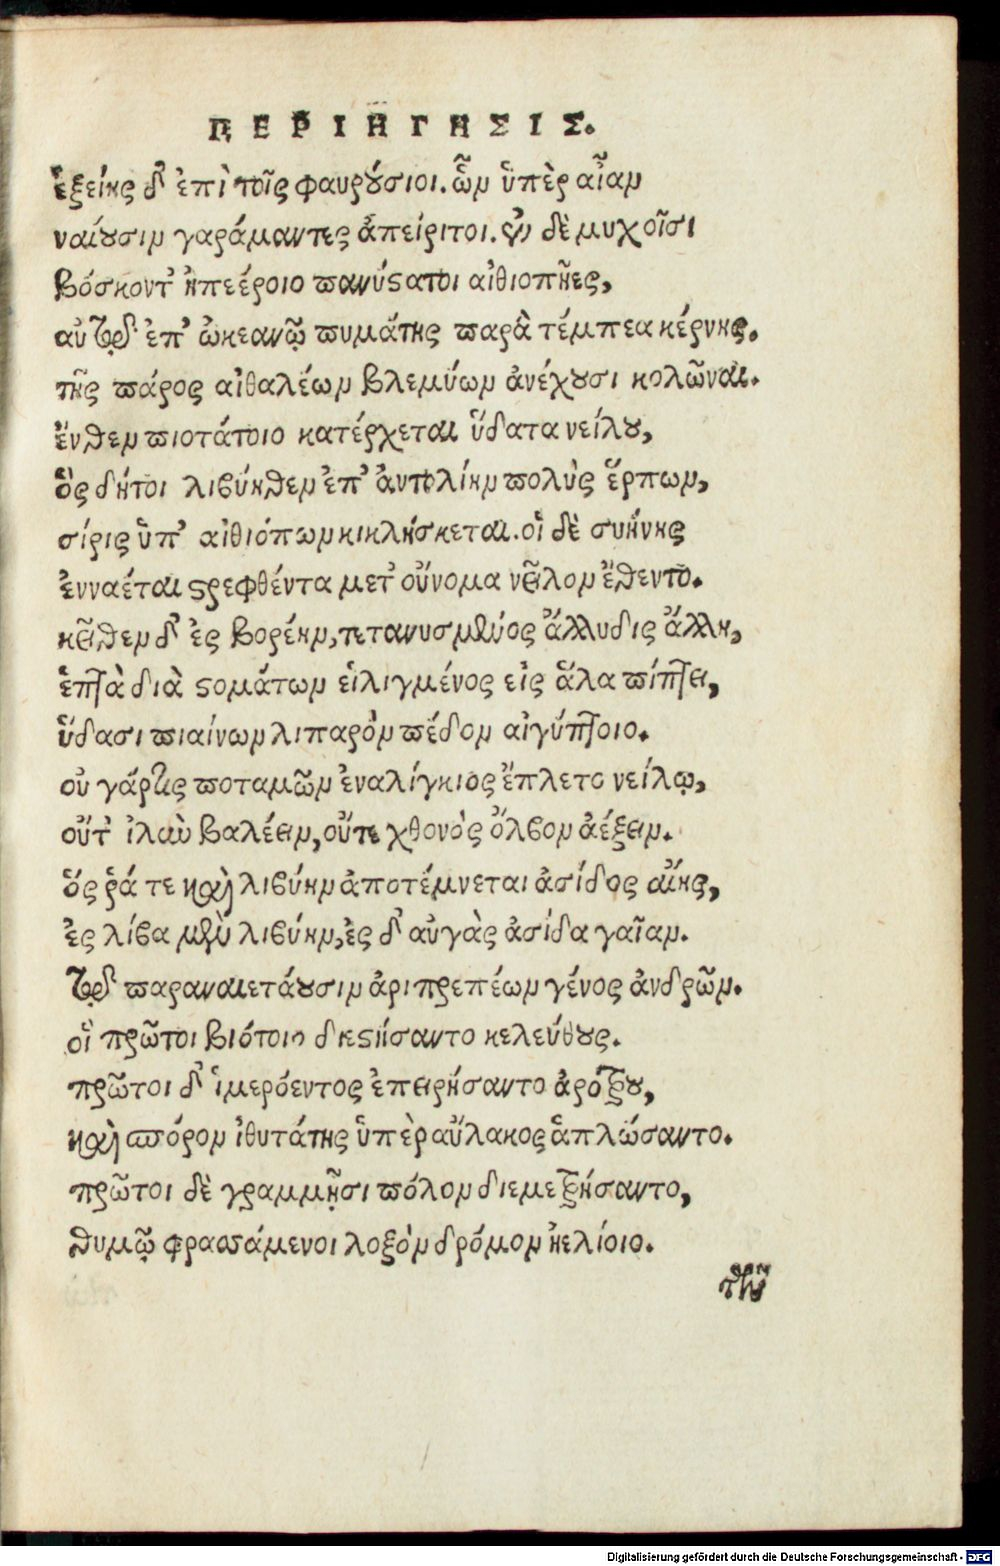 ΠΕΡΙΗΓΗΣΙΣ.
ἑξείης δ' ἐπὶ τοῖς φαυρούσιοι. ὧν ὑπὲρ αἶαν
ναίουσιν γαράμαντες ἀπείριτοι. ἐν δὲ μυχοῖσι
βόσκοντ' ἠπείροιο πανύστατοι αἰθιοπῆες,
αὐτῷ δ' ἐπ' ὠκεανῷ πυμάτης παρὰ τέμπεα κέρνης.
τῆς πάρος αἰθαλέων βλεμύων ἀνέχουσι κολῶναι.
ἔνθεν πιοτάτοιο κατέρχεται ὕδατα νείλου,
ὃς δήτοι λιβύηθεν ἐπ' ἀντολίην πολὺς ἕρπων,
σίρις ὑπ' αἰθιόπων κικλήσκεται. οἱ δὲ συήνης
ἐνναέται στρεφθέντα μετ' οὔνομα νεῖλον ἔθεντο.
κεῖθεν δ' ἐς βορέην, τετανυσμένος ἄλλυδις ἄλλη,
ἑπτὰ διὰ στομάτων εἱλιγμένος εἰς ἅλα πίπτει,
ὕδασι πιαίνων λιπαρὸν πέδον αἰγύπτοιο.
οὐ γάρ τις ποταμῶν ἐναλίγκιος ἔπλετο νείλῳ,
οὔτ' ἰλὺν βαλέειν, οὔτε χθονὸς ὄλβον ἀέξειν.
ὅς ῥά τε καὶ λιβύην ἀποτέμνεται ἀσίδος αἴης,
ἐς λίβα μὲν λιβύην, ἐς δ' αὐγὰς ἀσίδα γαῖαν.
τῷ δ' παραναιετάουσιν ἀριπρεπέων γένος ἀνδρῶν.
οἳ πρῶτοι βιότοιο διεστήσαντο κελεύθους.
πρῶτοι δ' ἱμερόεντος ἐπειρήσαντο ἀρότρου,
καὶ σπόρον ἰθυτάτης ὑπὲρ αὔλακος ἁπλώσαντο.
πρῶτοι δὲ γραμμῇσι πόλον διεμετρήσαντο,
θυμῷ φρασσάμενοι λοξὸν δρόμον ἠελίοιο.
Digitalisierung gefördert durch die Deutsche Forschungsgemeinschaft - DFG